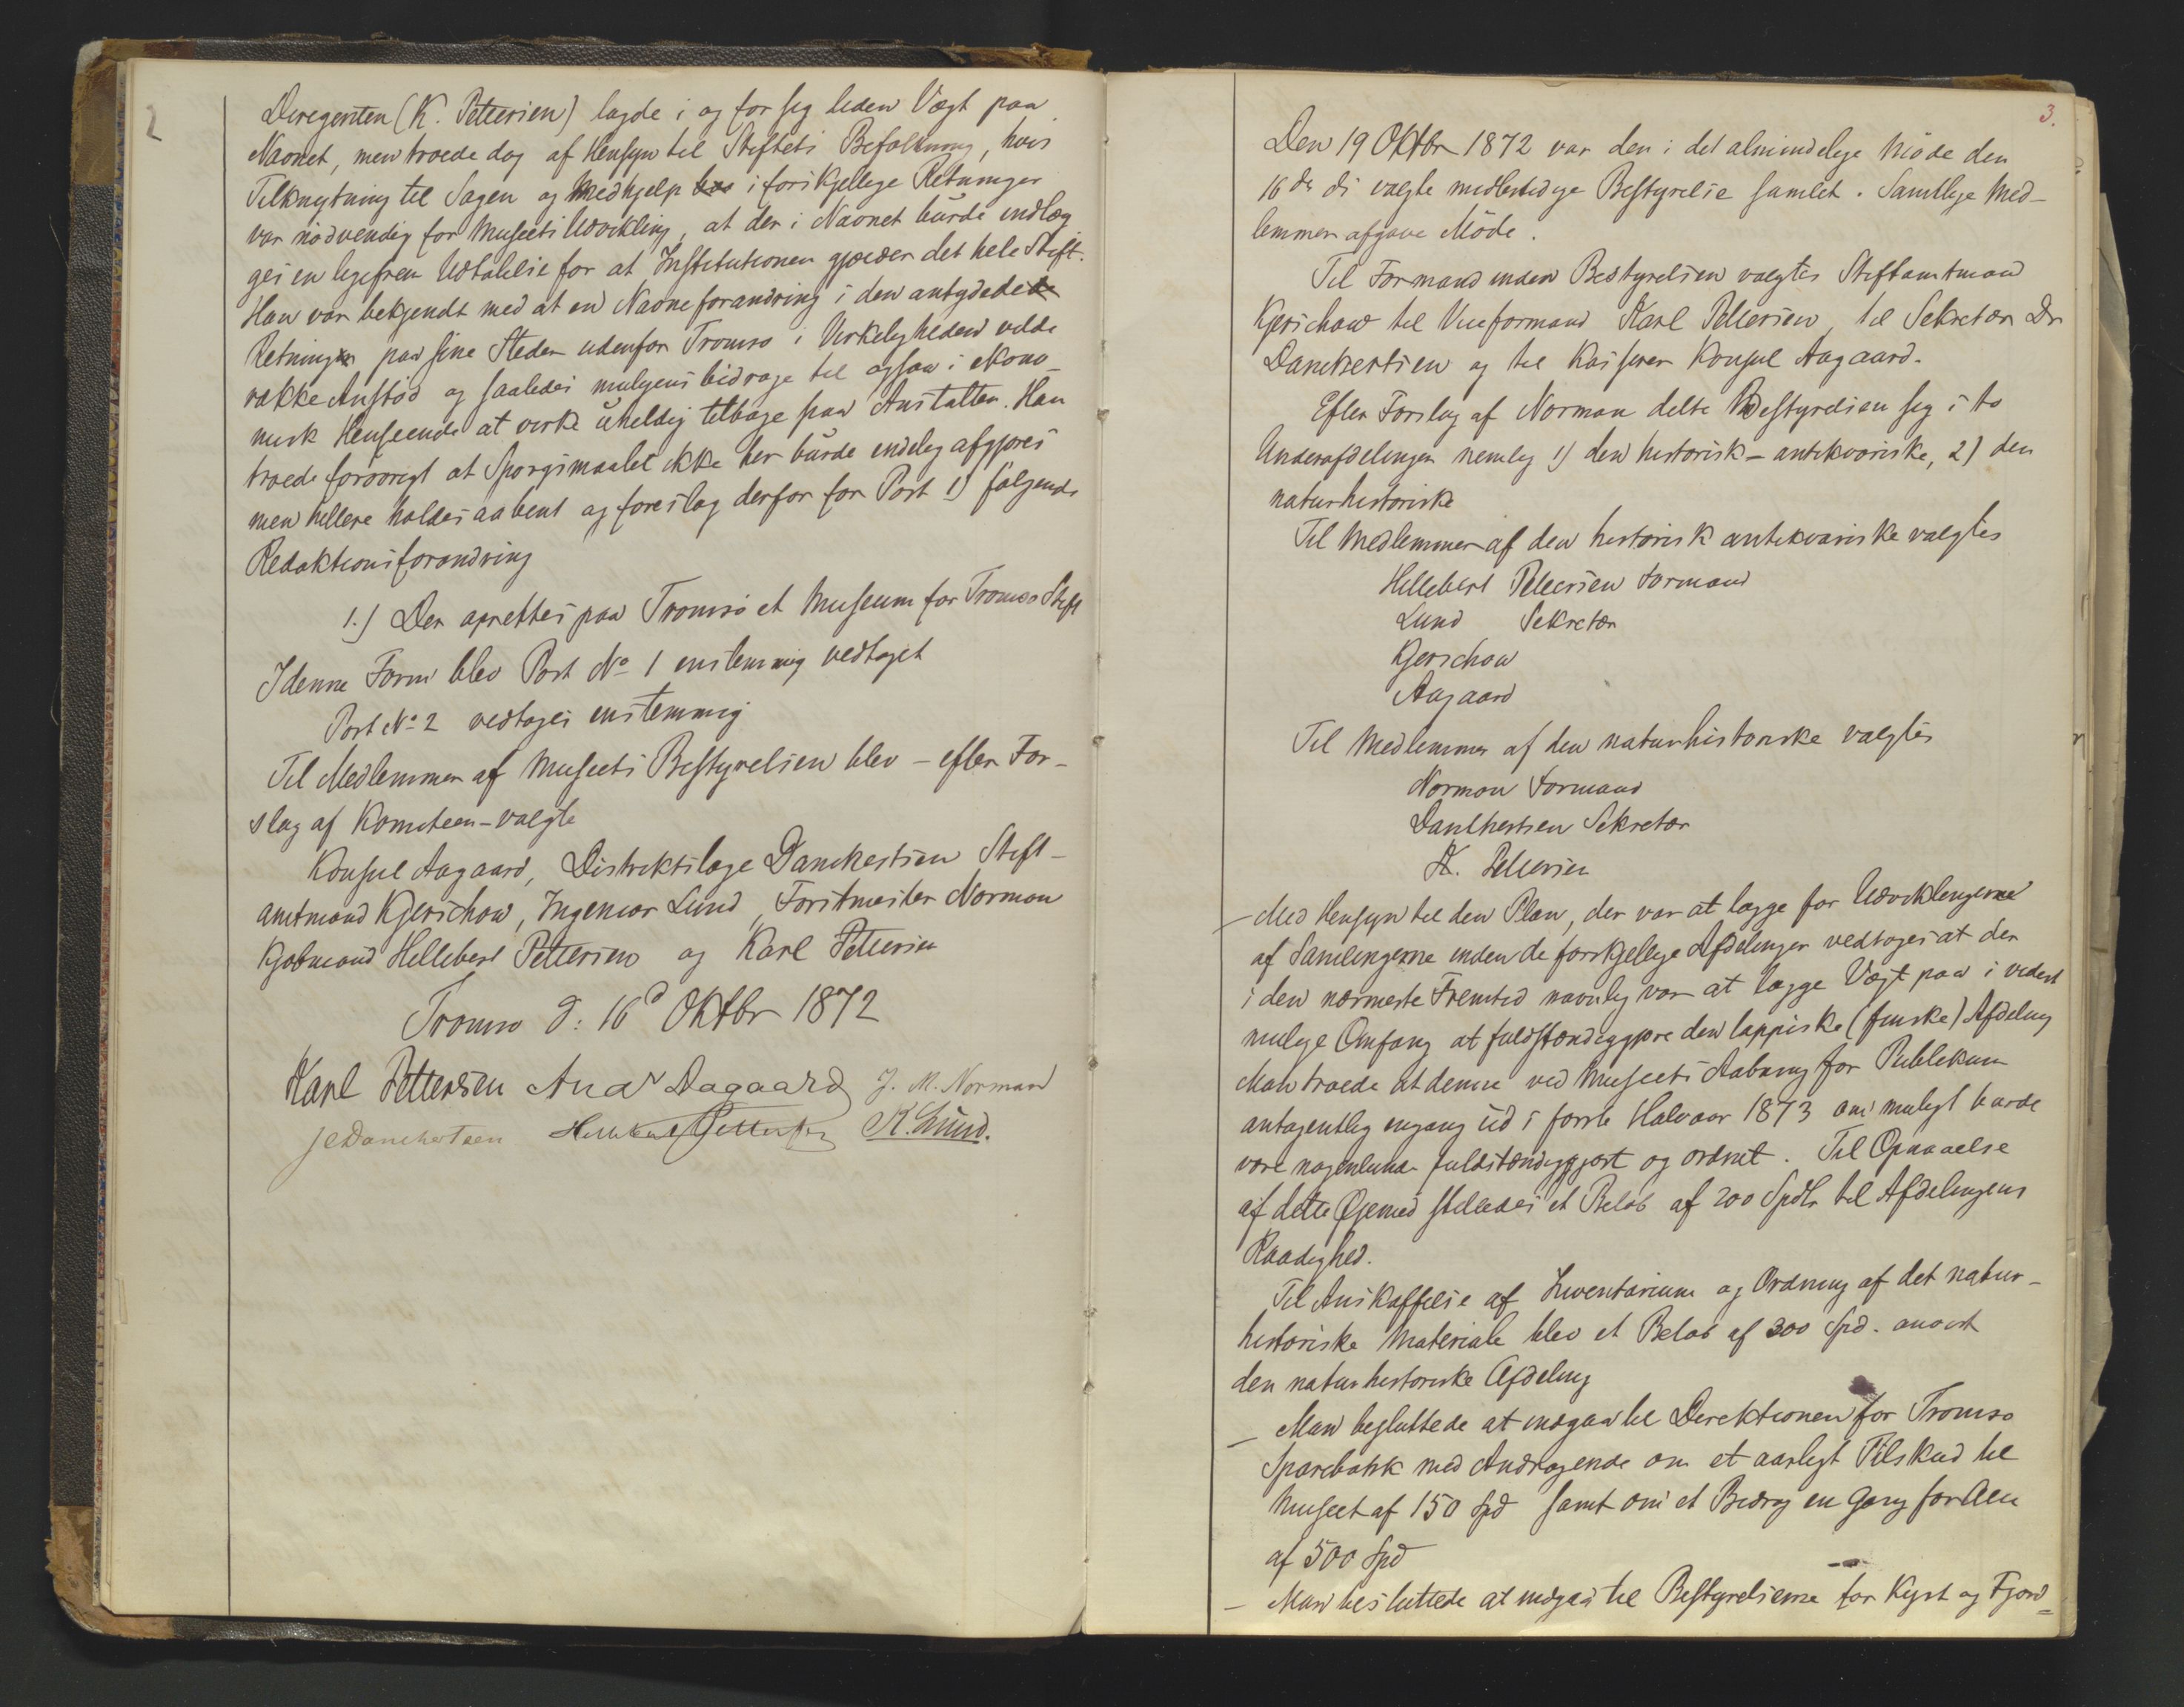 2
Deregenten (K. Pettersen) lagde i og for sig liden Vægt paa
Navnet, men troede dog af Hensyn til Stiftets Befolkning, hvis
Tilknytning til Sagen og Medhjelp i forskjellige Retninger
var nødvendig for Museets Udvikling, at der i Navnet burde indlæg
ges en ligefrem Udtalelse for at Institutionen gjælder det hele Stift.
Han var bekjendt med at en Navneforandring i den antydede
Retning paa sine Steder udenfor Tromsø i Virkeligheden vilde
vække Anstød og saaledes muligens bidrage til ogsaa i økono-
misk Henseende at virke uheldig tilbage paa Anstalten. Han
troede forøvrigt at Spørgsmaalet ikke her burde endelig afgjøres
men hellere holdes aabent og foreslog derfor for Post 1) følgende
Redaktionsforandring
1.) Der oprettes paa Tromsø et Museum for Tromsø Stift
I denne Form blev Post No 1 enstemmig vedtaget
Post No 2 vedtages enstemmig
Til Medlemmer af Museets Bestyrelsen blev – efter For-
slag af Komiteen – valgte
Konsul Aagaard, Distriktslæge Danckertsen Stift-
amtmand Kjerschow, Ingeniør Lund, Forstmester Norman
Kjøbmand Hellebert Pettersen og Karl Pettersen
Tromsø d: 16d Oktbr 1872
Karl Pettersen Andr Aagaard J. M. Norman
JCDanckertsen Hellebert Pettersen K. Lund.
3.
Den 19 Oktbr 1872 var den i det almindelige Møde den
16de ds valgte midlertidige Bestyrelse samlet. Samtlige Med-
lemmer afgave Møde.
Til Formand inden Bestyrelsen valgtes Stiftamtmand
Kjerschow til Viceformand Karl Pettersen, til Sekretær Dr
Danckertsen og til Kasserer Konsul Aagaard.
Efter Forslag af Norman delte Bestyrelsen sig i to
Underafdelinger nemlig 1) den historisk-antikvariske, 2) den
naturhistoriske
Til Medlemmer af den historisk antikvariske valgtes
Hellebert Pettersen Formand
Lund Sekretær
Kjerschow
Aagaard
Til Medlemmer af den naturhistoriske valgtes
Norman Formand
Danckertsen Sekretær
K. Pettersen
– Med Hensyn til den Plan, der var at lægge for Udviklingerne
af Samlingerne inden de forskjellige Afdelinger vedtoges at der
i den nærmeste Fremtid navnlig var at lægge Vægt paa i videst
mulige Omfang at fuldstændiggjøre den lappiske (finske) Afdeling
Man troede at denne ved Museets Aabning for Publikum
antagentlig engang ud i første Halvaar 1873 om muligt burde
være nogenlunde fuldstændiggjort og ordnet. Til Opnaaelse
af dette Øjemed stilledes et Beløb af 200 Spdlr til Afdelingens
Raadighed.
Til Anskaffelse af Inventarium og Ordning af det natur-
historiske Materiale blev et Beløb af 300 Spd. anvist
den naturhistoriske Afdeling
– Man besluttede at indgaa til Direktionen for Tromsø
Sparebank med Andragende om et aarligt Tilskud til
Museet af 150 Spd samt om et Bidrag en Gang for Alle
af 500 Spd
– Man besluttede at indgaa til Bestyrelserne for Kyst og Fjord=